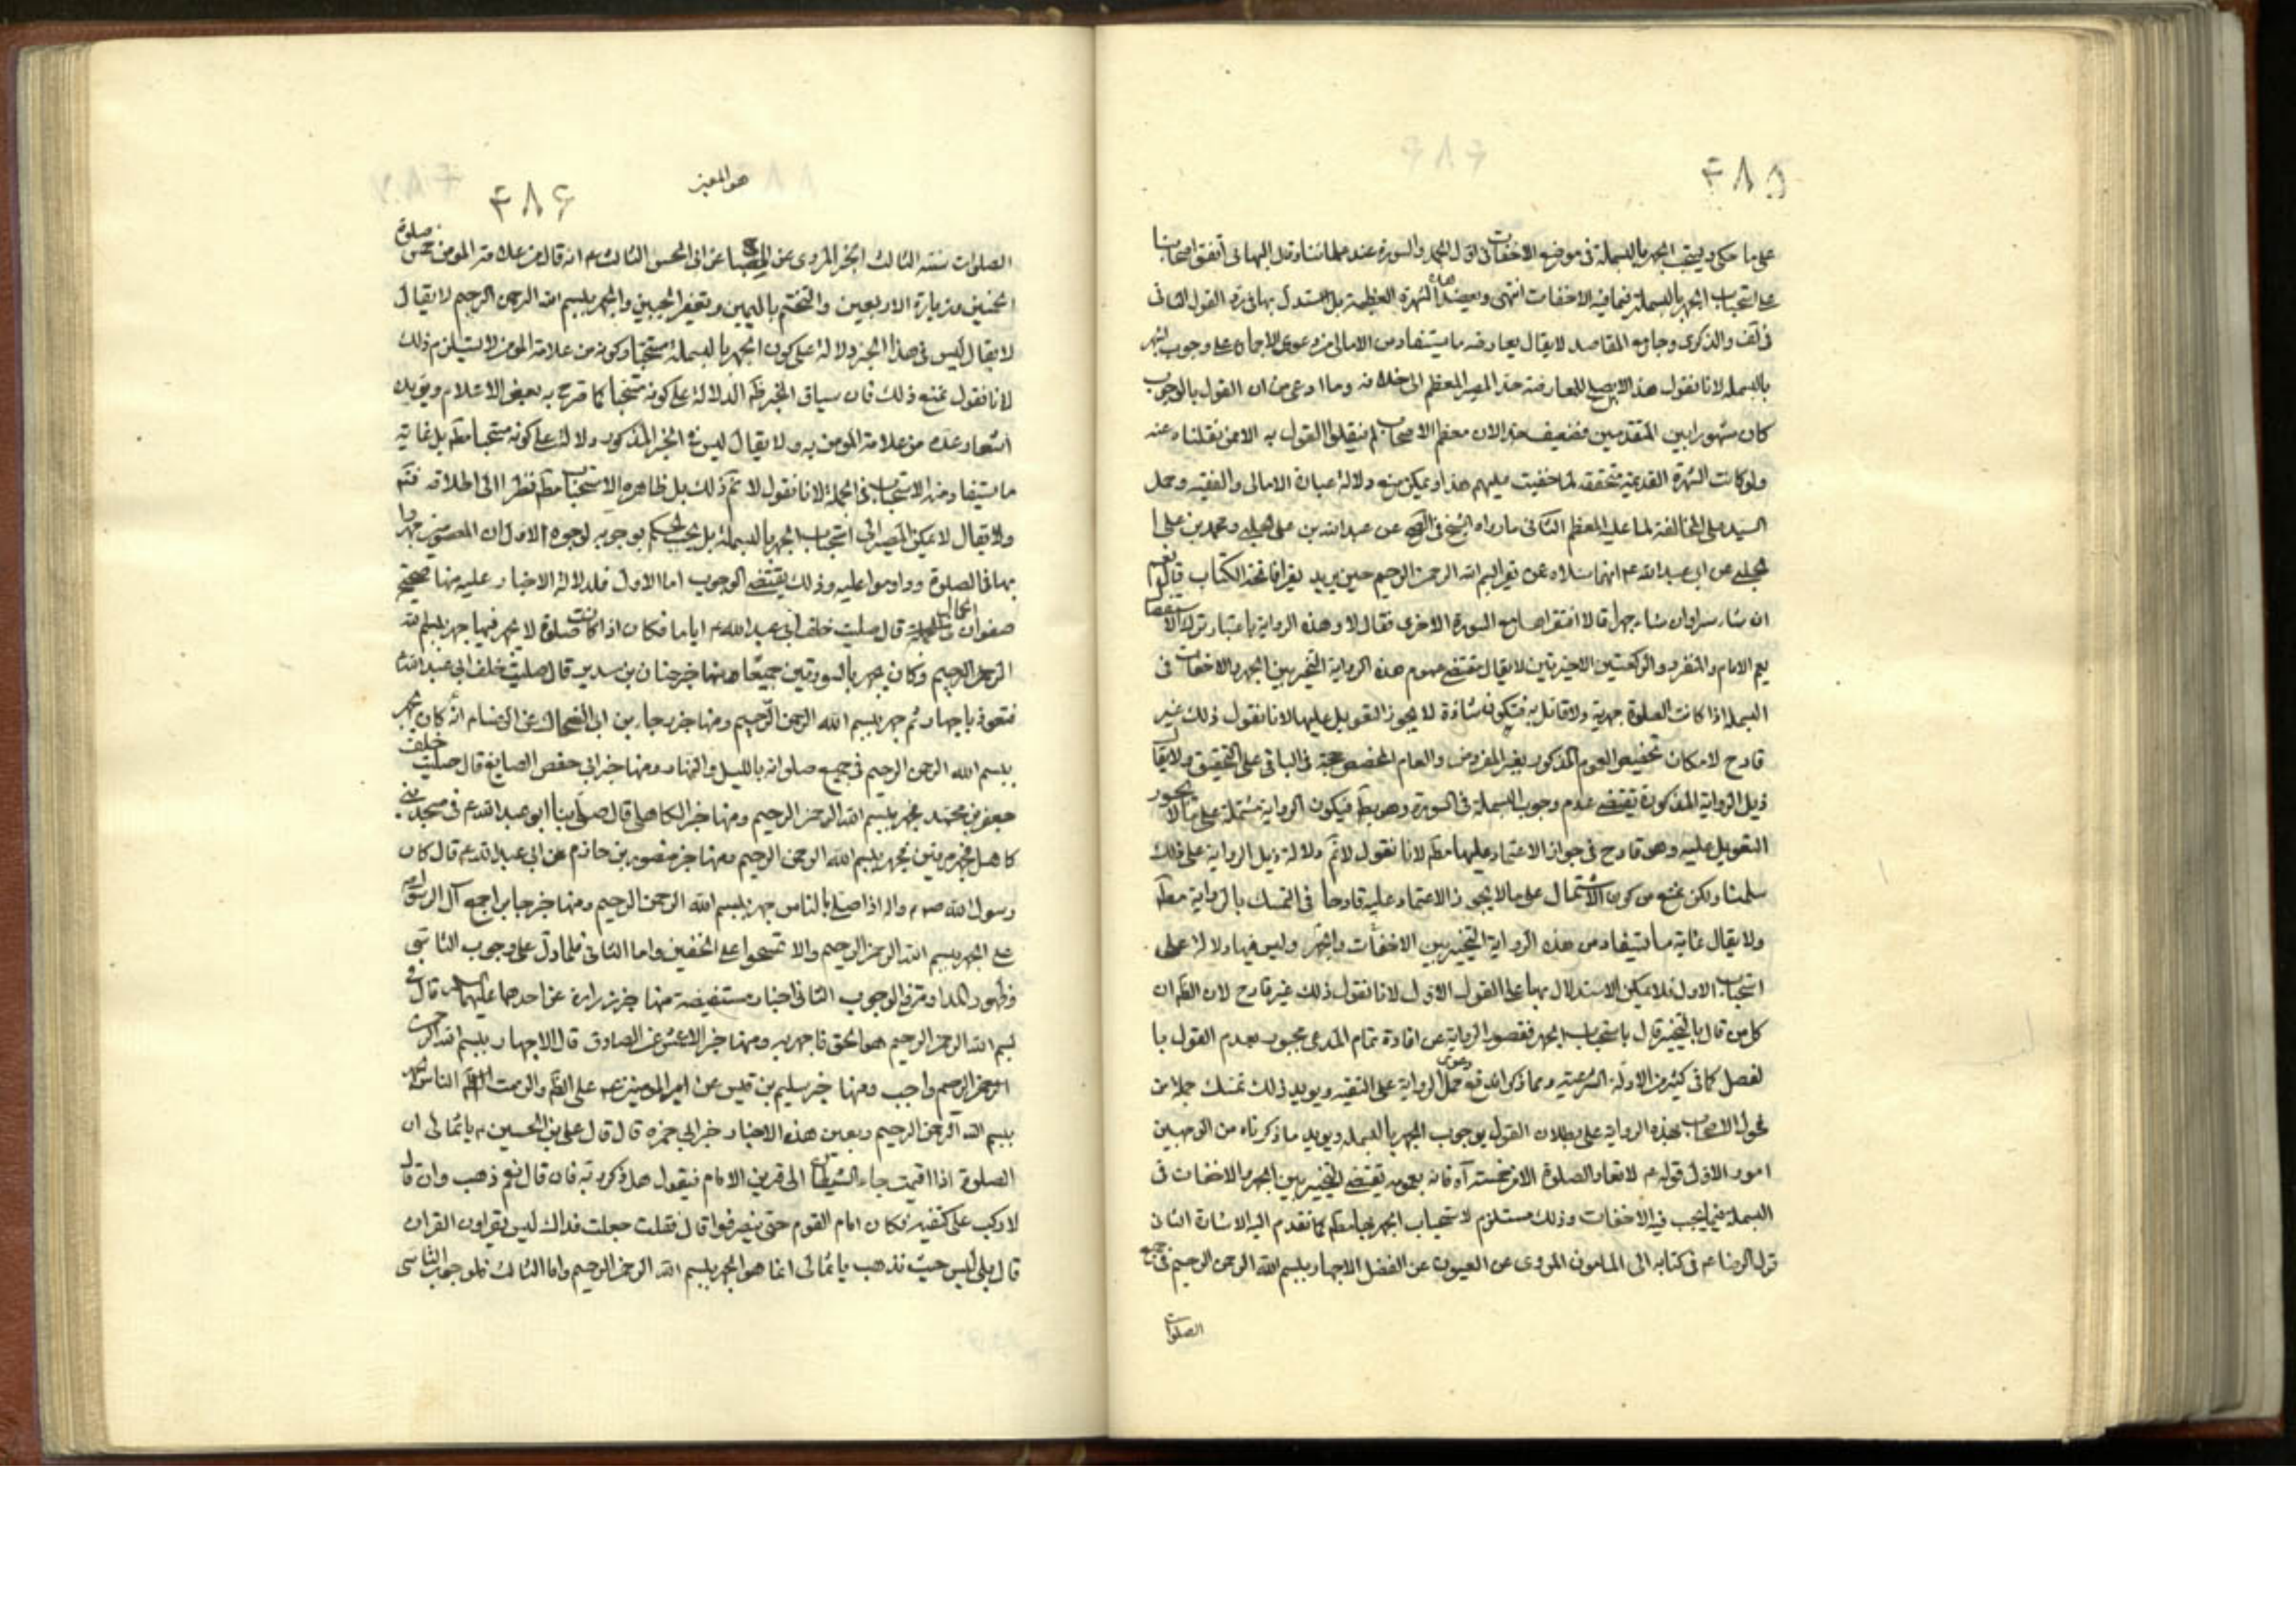 ۴۸۵
على ما حكى ويستحب الجهر بالبسملة فى موضع الاخفات فى اول الحمد والسورة عند علمائنا وقال البهائى اتفق اصحابنا
على استحباب الجهر بالبسملة فيما فيه الاخفات انتهى ويعضدها الشهرة العظيمة بل استدل بها فى القول الثانى
فى لف والذكرى وجامع المقاصد لا يقال يعارضه ما يستفاد من الامالى من دعوى الاجماع على وجوب الجهر
بالبسملة لانا نقول هذا لا يصلح للمعارضة حذا المصير المعظم الى خلافه وما ادعى من ان القول بالوجوب
كان مشهورا بين المتقدمين فضعيف جدا لان معظم الاصحاب لم ينقلوا القول به الا ممن نقلناه عنه
ولو كانت الشهرة القديمة متحققة لما خفيت عليهم هذا ويمكن منع دلالة عبارة الامالى والفقيه وحمل
السيد على المخالفة لما عليه المعظم الثانى ما رواه الشيخ فى الصحيح عن عبد الله بن على الحلبى ومحمد بن على ا
لحلبى عن ابى عبد الله ع انهما سئلاه عن يقرا بسم الله الرحمن الرحيم حين يريد يقرا فاتحة الكتاب قال نعم
ان شاء سرا وان شاء جهرا قالا افنقراها مع السورة الاخرى فقال لا وهذه الرواية باعتبار ترك الاستفصال
يعم الامام والمنفرد والركعتين الاخيرتين لا يقال مقتضى عموم هذه الرواية التخيير بين الجهر والاخفات فى
البسملة اذا كانت الصلوة جهرية ولا قائل به فتكون شاذة لا يجوز التعويل عليها لانا نقول ذلك غير
قادح لامكان تخصيص العموم المذكور بغير المفروض والعام المخصص حجة فى الباقى على التحقيق ولا يقال
ذيل الرواية المذكورة يقتضى عدم وجوب البسملة فى السورة وهو بط فيكون الرواية مشتملة على ما لا يجوز
التعويل عليه وهو قادح فى جواز الاعتماد عليها مطم لانا نقول لا نم دلالة ذيل الرواية على ذلك
سلمنا ولكن نمنع من كون الاشتمال على ما لا يجوز الاعتماد عليه قادحا فى التمسك بالرواية مطم
ولا يقال غاية ما يستفاد من هذه الرواية التخيير بين الاخفات والجهر وليس فيها دلالة على
استحباب الاول فلا يمكن الاستدلال بها على القول الاول لانا نقول ذلك غير قادح لان الظ ان
كل من قال بالتخيير قال باستحباب الجهر فقصور الرواية عن افادة تمام المدعى مجبور بعدم القول با
لفصل كما فى كثير من الادلة الشرعية ومما ذكر اندفع دعوى حمل الرواية على التقية ويويد ذلك تمسك جملة من
فحول الاصحاب بهذه الرواية على بطلان القول بوجوب الجهر بالبسملة ويويد ما ذكرناه من الوجهين
امور الاول قوله ع لا تعاد الصلوة الا من خمسة آه فانه بعمومه يقتضى التخيير بين الجهر والاخفات فى
البسملة فيما يجب فيه الاخفات وذلك مستلزم لاستحباب الجهر بها مطم كما تقدم اليه الاشارة الثانى
قول الرضا ع فى كتابه الى المامون المروى عن العيون عن الفضل الاجهار ببسم الله الرحمن الرحيم فى جميع
الصلوات
هو المعين
۴۸۶
الصلوات سنة الثالث الخبر المروى عن المصباح عن ابى الحسن الثالث ع انه قال من علامة المومن خمس صلوة
الخمسين وزيارة الاربعين والتختم باليمين وتعفير الجبين والجهر ببسم الله الرحمن الرحيم لا يقال
لا يقال ليس فى هذا الخبر دلالة على كون الجهر بالبسملة مستحبا وكونه من علامة المومن لا يستلزم ذلك
لانا نقول نمنع ذلك فان سياق الخبر ظ الدلالة على كونه مستحبا كما صرح به بعض الاعلام ويويده
اشعار عده من علامة المومن به ولا يقال ليس فى الخبر المذكور دلالة على كونه مستحبا مطم بل غاية
ما يستفاد منه الاستحباب فى الجملة لانا نقول لا نم ذلك بل ظاهره الاستحباب مطم نظرا الى اطلاقه فتم
ولا يقال لا يمكن المصير الى استحباب الجهر بالبسملة بل يجب الحكم بوجوبه لوجوه الاول ان المعصومين جهروا
بها فى الصلوة وداوموا عليه وذلك يقتضى الوجوب اما الاول فلدلالة الاخبار عليه منها صحيحة
صفوان الجمال قال صليت خلف ابى عبد الله ع اياما فكان اذا كانت صلوة لا يجهر فيها جهر ببسم الله
الرحمن الرحيم وكان يجهر بالسورتين جميعا ومنها خبر حنان بن سدير قال صليت خلف ابى عبد الله ع
فتعوذ باجهار ثم جهر ببسم الله الرحمن الرحيم ومنها خبر رجاء بن ابى الضحاك عن الرضا ع انه كان يجهر
ببسم الله الرحمن الرحيم فى جميع صلواته بالليل والنهار ومنها خبر ابى حفص الصايغ قال صليت خلف
جعفر بن محمد فجهر ببسم الله الرحمن الرحيم ومنها خبر الكاهلى قال صلى بنا ابو عبد الله ع فى مسجد بنى
كاهل فجهر مرتين ببسم الله الرحمن الرحيم ومنها خبر منصور بن حازم عن ابى عبد الله ع قال كان
رسول الله صلى الله عليه واله اذا صلى بالناس جهر ببسم الله الرحمن الرحيم ومنها خبر جابر اجمع آل الرسول
على الجهر ببسم الله الرحمن الرحيم والا تمسحوا على الخفين واما الثانى فلما دل على وجوب التاسى
وظهور المداومة فى الوجوب الثانى اخبار مستفيضة منها خبر زرارة عن احدهما عليهما السلام قال فى
بسم الله الرحمن الرحيم هو الحق فاجهر به ومنها خبر الاعمش عن الصادق قال الاجهار ببسم الله الرحمن
الرحيم واجب ومنها خبر سليم بن قيس عن امير المومنين ع على الظ والزمت الناس الجهر
ببسم الله الرحمن الرحيم وبعين هذه الاخبار خبر ابى حمزه قال قال على بن الحسين ع يا ثمالى ان
الصلوة اذا اقيمت جاء الشيطان الى قرين الامام فيقول هل ذكر ربه فان قال نعم ذهب وان قال
لا ركب على كتفيه فكان امام القوم حتى ينصرفوا قال فقلت جعلت فداك ليس يقراون القران
قال بلى ليس حيث تذهب يا ثمالى انما هو الجهر ببسم الله الرحمن الرحيم واما الثالث فلوجوب التاسى